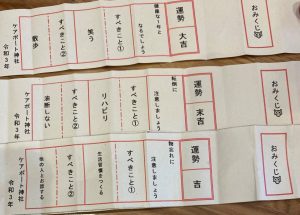 おみくじ
運勢　大吉
健康な1年と
なるでしょう
すべきこと①
笑う
すべきこと②
散歩
ケアポート神社
令和3年
おみくじ
運勢　末吉
転倒に
注意しましょう
すべきこと①
リハビリ
すべきこと②
油断しない
ケアポート神社
令和3年
おみくじ
運勢　吉
物忘れに
注意しましょう
すべきこと①
生活習慣をつくる
すべきこと②
他の人と会話する
ケアポート神社
令和3年